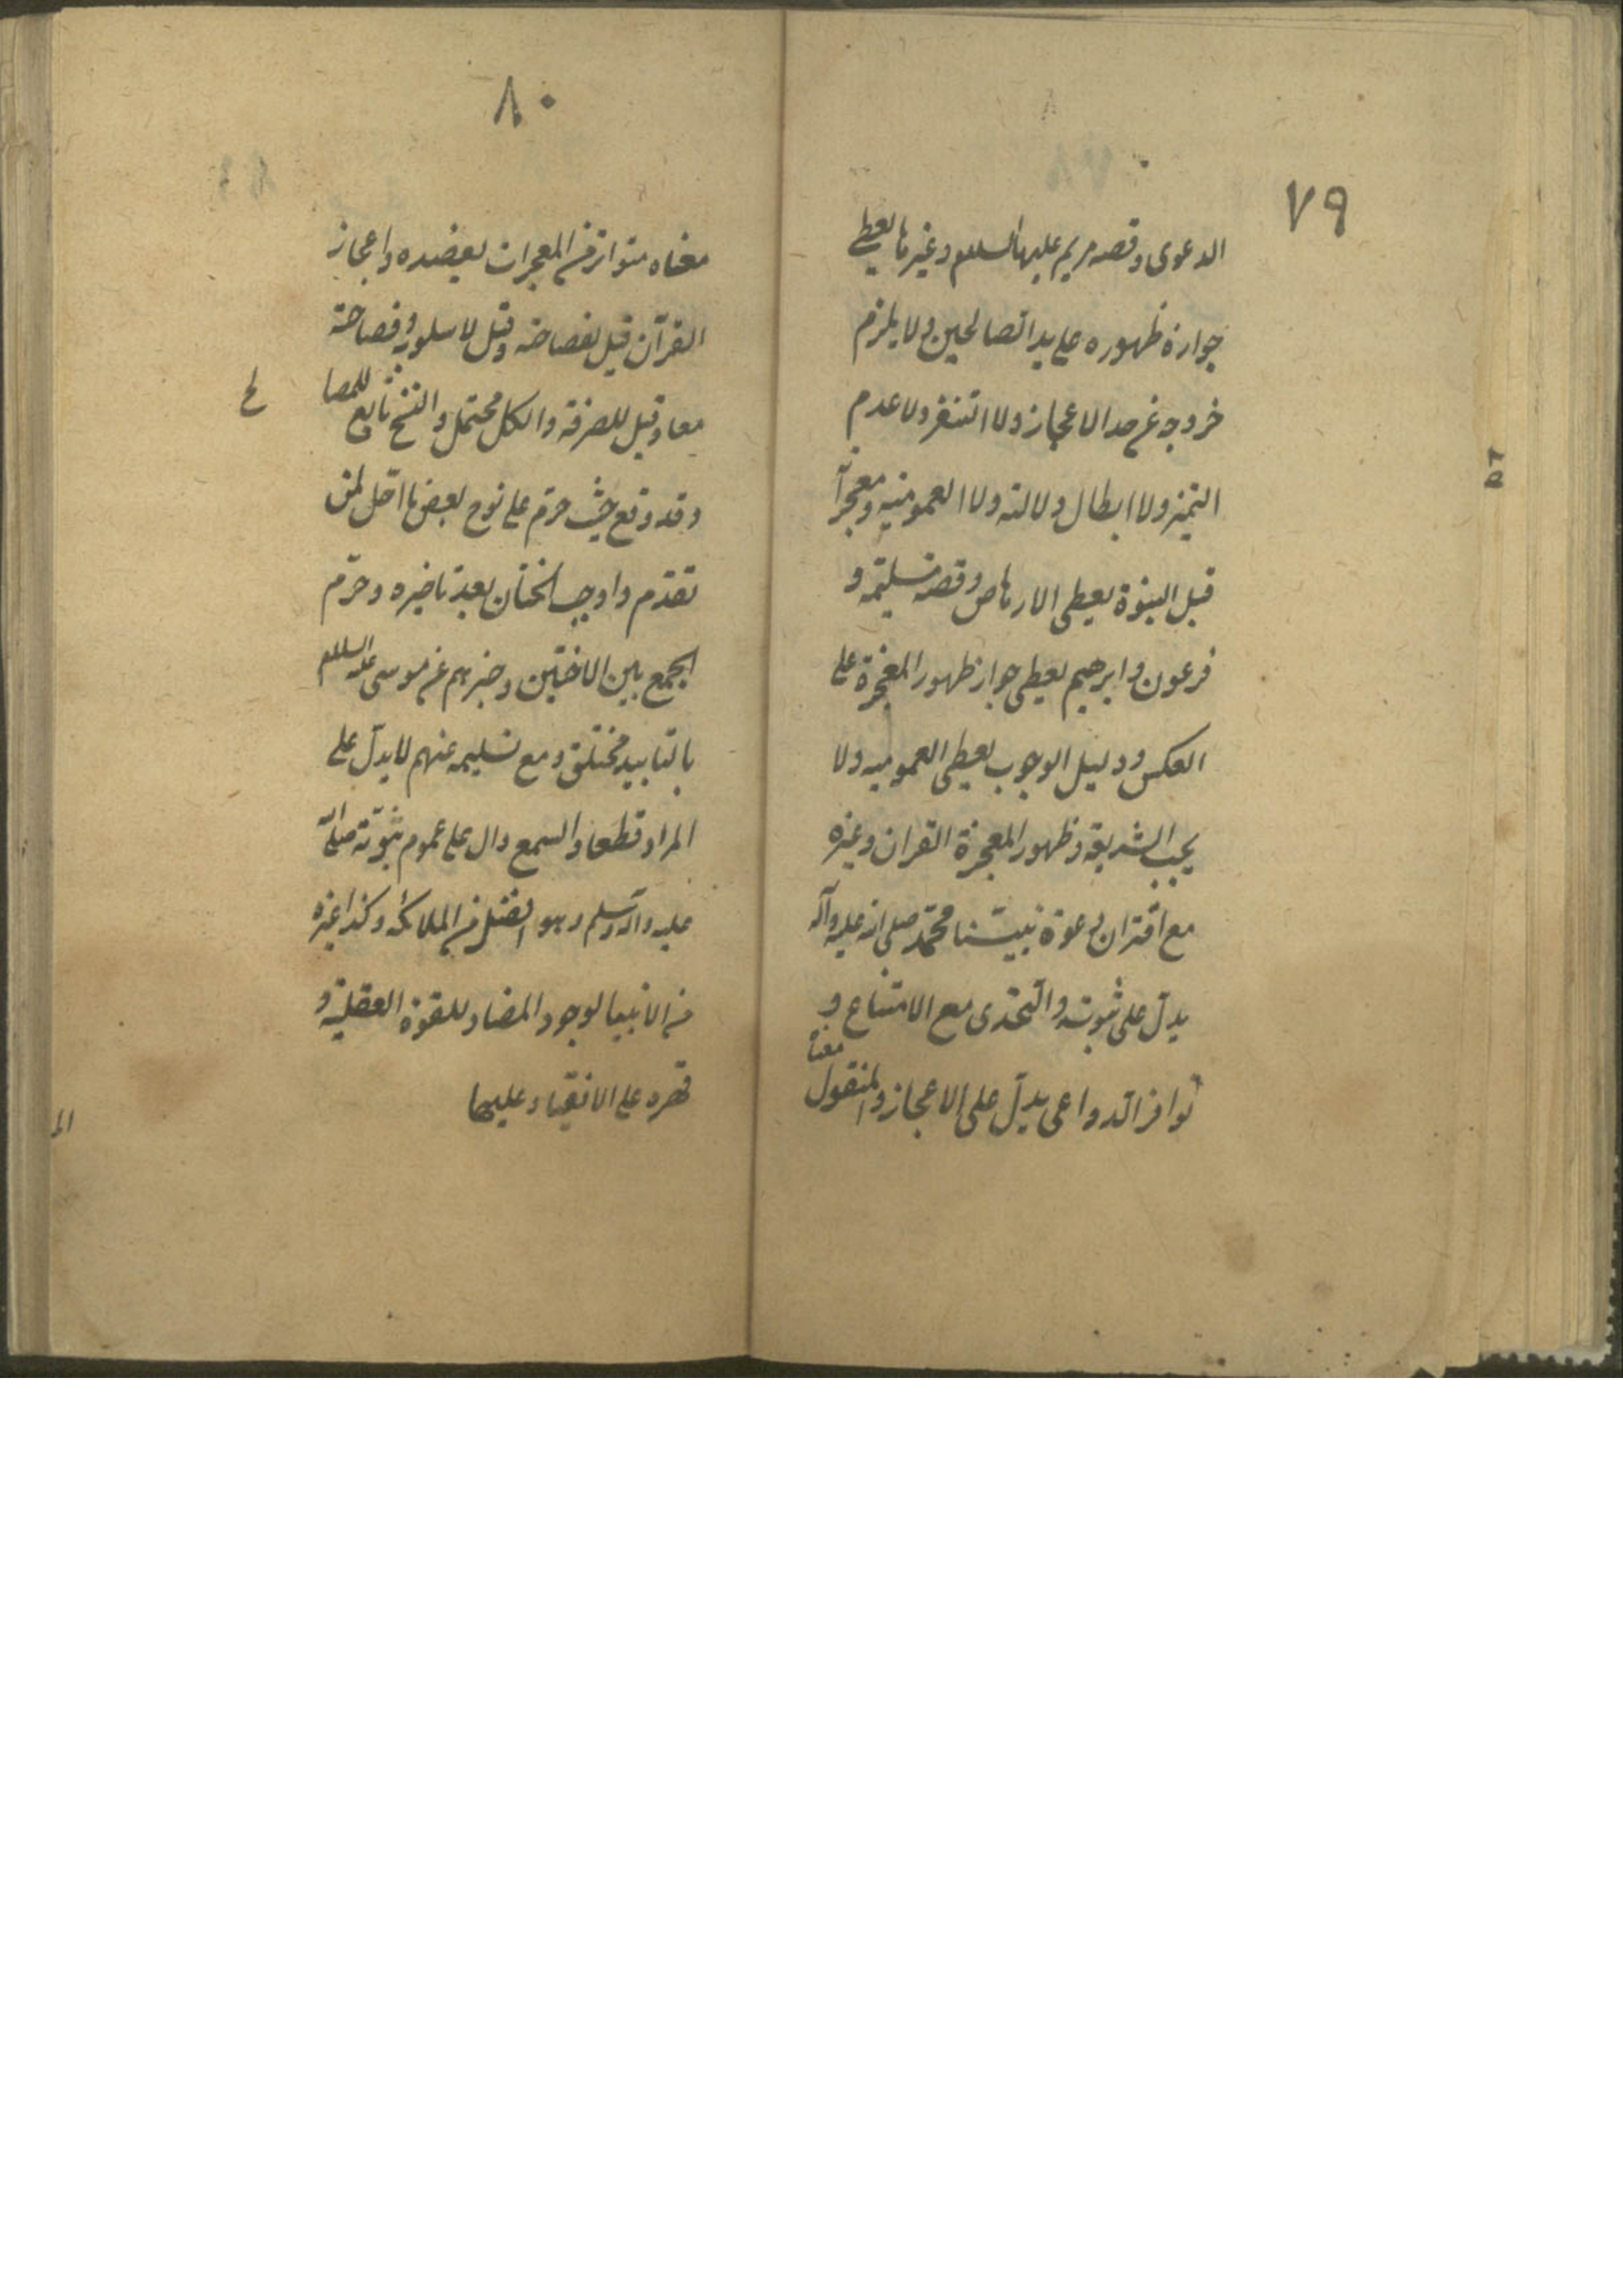 ٧٩
الدعوى وقصه مريم عليها السلام وغيرها يعطى
جوازة ظهوره على يد الصالحين ولا يلزم
خروجه عن حد الاعجاز ولا التنفر ولا عدم
التميز ولا ابطال دلالته ولا العموميه ومعجزاته
قبل النبوة يعطى الارهاص وقصه مسليمه و
فرعون وابرهيم يعطى جواز ظهور المعجزة على
العكس ودليل الوجوب يعطى العموميه ولا
يجب الشريعه وظهور المعجزة القران وغيره
مع اقتران دعوة نبينا محمد صلى الله عليه وآله
يدل على ثبوته والتحدى مع الامتناع و
توافر الدواعى يدل على الاعجاز والمنقول
معناه
٨٠
معناه متواتر من المعجزات يعضده واعجاز
القرآن قيل لفصاحته وقيل لاسلوبه وفصاحته
معا وقيل للصرفة والكل محتمل والنسخ تابع للمصا
لح
وقد وقع حيث حرم على نوح بعض ما احل لمن
تقدم واوجب الختان بعد تاخيره وحرم
الجمع بين الاختين وخبرهم عن موسى عليه السلام
بالتابيد مختلق ومع تسليمه عنهم لا يدل على
المراد قطعا والسمع دال على عموم نبوته صلى الله
عليه وآله وسلم وهو افضل من الملائكه وكذا غيره
من الانبيا لوجود المضاد للقوة العقلية و
قهره على الانقياد عليها